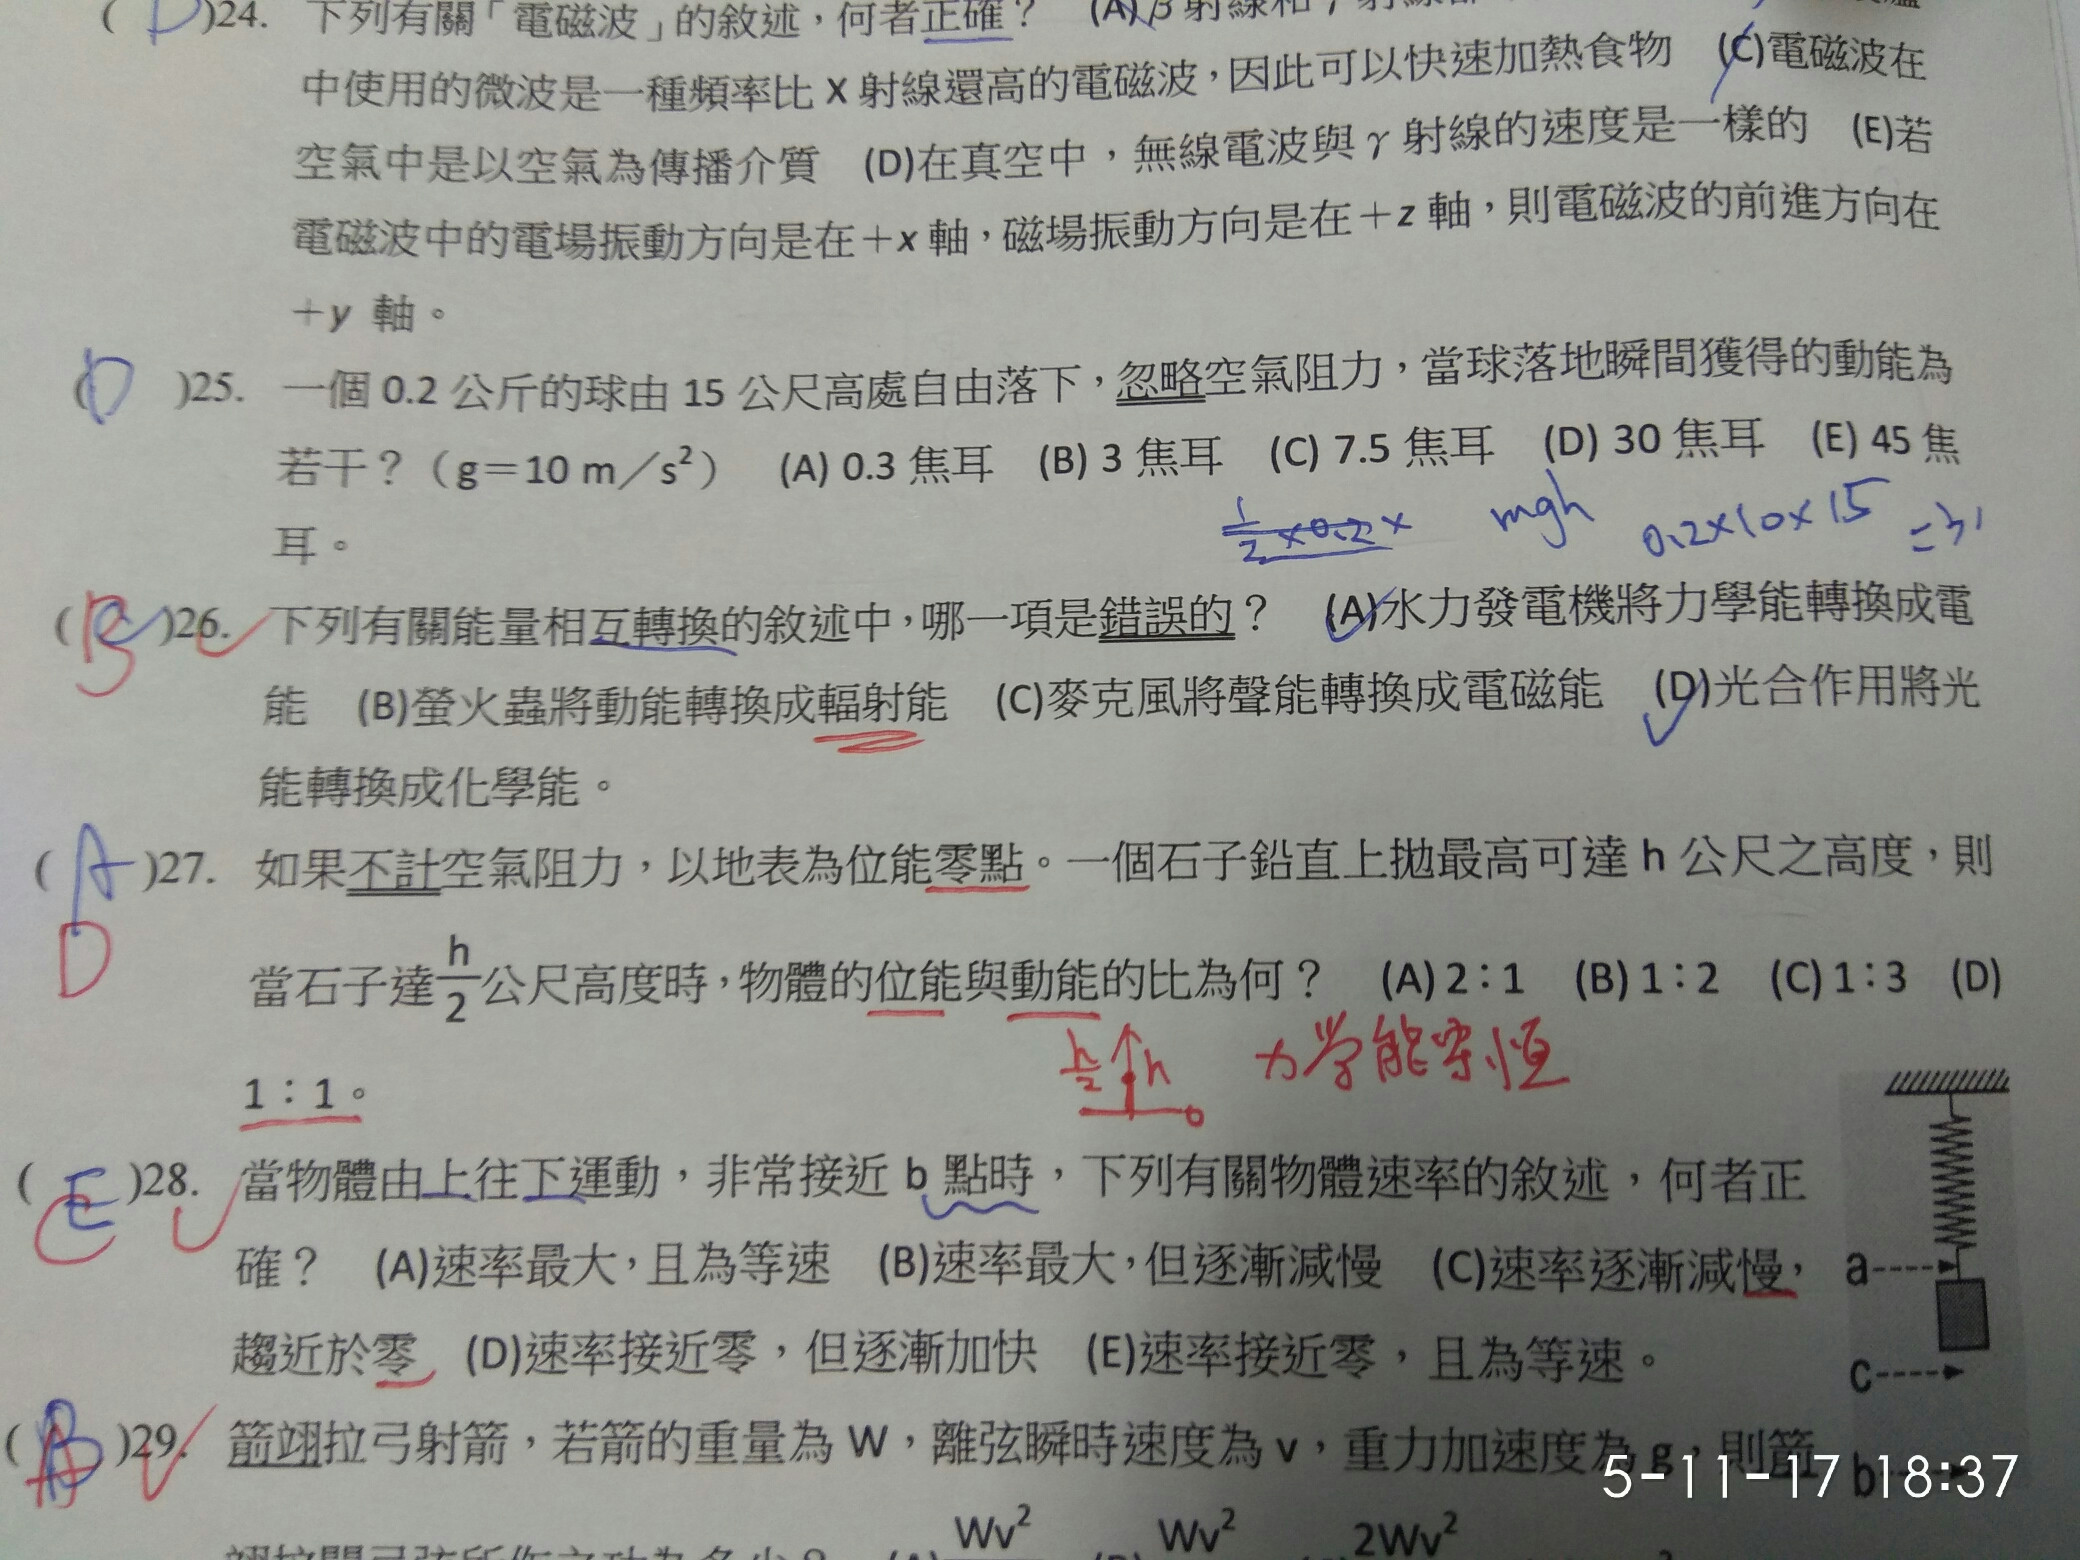 ( D )24. 下列有關「電磁波」的敘述，何者正確？ (A)β射線和γ射線都
中使用的微波是一種頻率比 X 射線還高的電磁波，因此可以快速加熱食物 (C)電磁波在
空氣中是以空氣為傳播介質 (D)在真空中，無線電波與γ射線的速度是一樣的 (E)若
電磁波中的電場振動方向是在＋x 軸，磁場振動方向是在＋z 軸，則電磁波的前進方向在
＋y 軸。
( D )25. 一個 0.2 公斤的球由 15 公尺高處自由落下，忽略空氣阻力，當球落地瞬間獲得的動能為
若干？（g＝10 m／s²） (A) 0.3 焦耳 (B) 3 焦耳 (C) 7.5 焦耳 (D) 30 焦耳 (E) 45 焦
耳。
1/2 ×0.2× mgh 0.2×10×15
( B )26. 下列有關能量相互轉換的敘述中，哪一項是錯誤的？ (A)水力發電機將力學能轉換成電
能 (B)螢火蟲將動能轉換成輻射能 (C)麥克風將聲能轉換成電磁能 (D)光合作用將光
能轉換成化學能。
( A )27. 如果不計空氣阻力，以地表為位能零點。一個石子鉛直上拋最高可達 h 公尺之高度，則
D
當石子達 h/2 公尺高度時，物體的位能與動能的比為何？ (A) 2：1 (B) 1：2 (C) 1：3 (D)
1：1。
h/2 h 0 力學能守恆
( E )28. 當物體由上往下運動，非常接近 b 點時，下列有關物體速率的敘述，何者正
C
確？ (A)速率最大，且為等速 (B)速率最大，但逐漸減慢 (C)速率逐漸減慢，
趨近於零 (D)速率接近零，但逐漸加快 (E)速率接近零，且為等速。
a
c
b
( B A )29. 箭翊拉弓射箭，若箭的重量為 W，離弦瞬時速度為 v，重力加速度為 g，則箭
翊拉開弓弦所作之功為多少？ (A) Wv² (B) Wv² 2Wv²
5-11-17 18:37